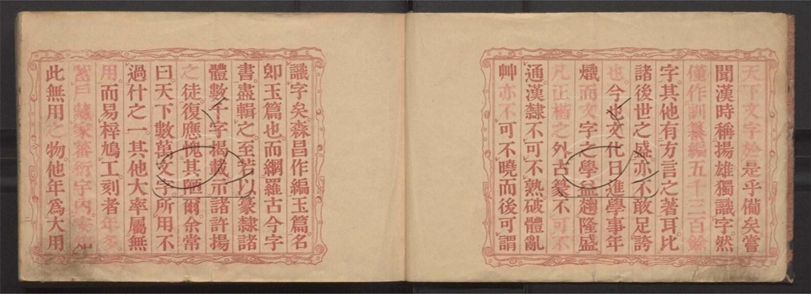 天下文字於是乎備矣嘗
聞漢時稱揚雄獨識字然
僅作訓纂編五千三百餘
字其他有方言之著耳比
諸後世之盛亦不敢足誇
也今也文化日進學事年
熾而文字之學益趨隆盛
凡正楷之外古篆不可不
通漢隸不可不熟破體亂
艸亦不可不曉而後可謂
識字矣森昌作編玉篇名
卽玉篇也而網羅古今字
書盡輯之至若以篆隸諸
體數千字揭載示諸許揚
之徒復應愧其陋爾余常
曰天下數萬文字所用不
過什之一其他大率屬無
用而易梓鳩工刻者年多
蓋戶藏家蓄衍字內案
此無用之物他年爲大用